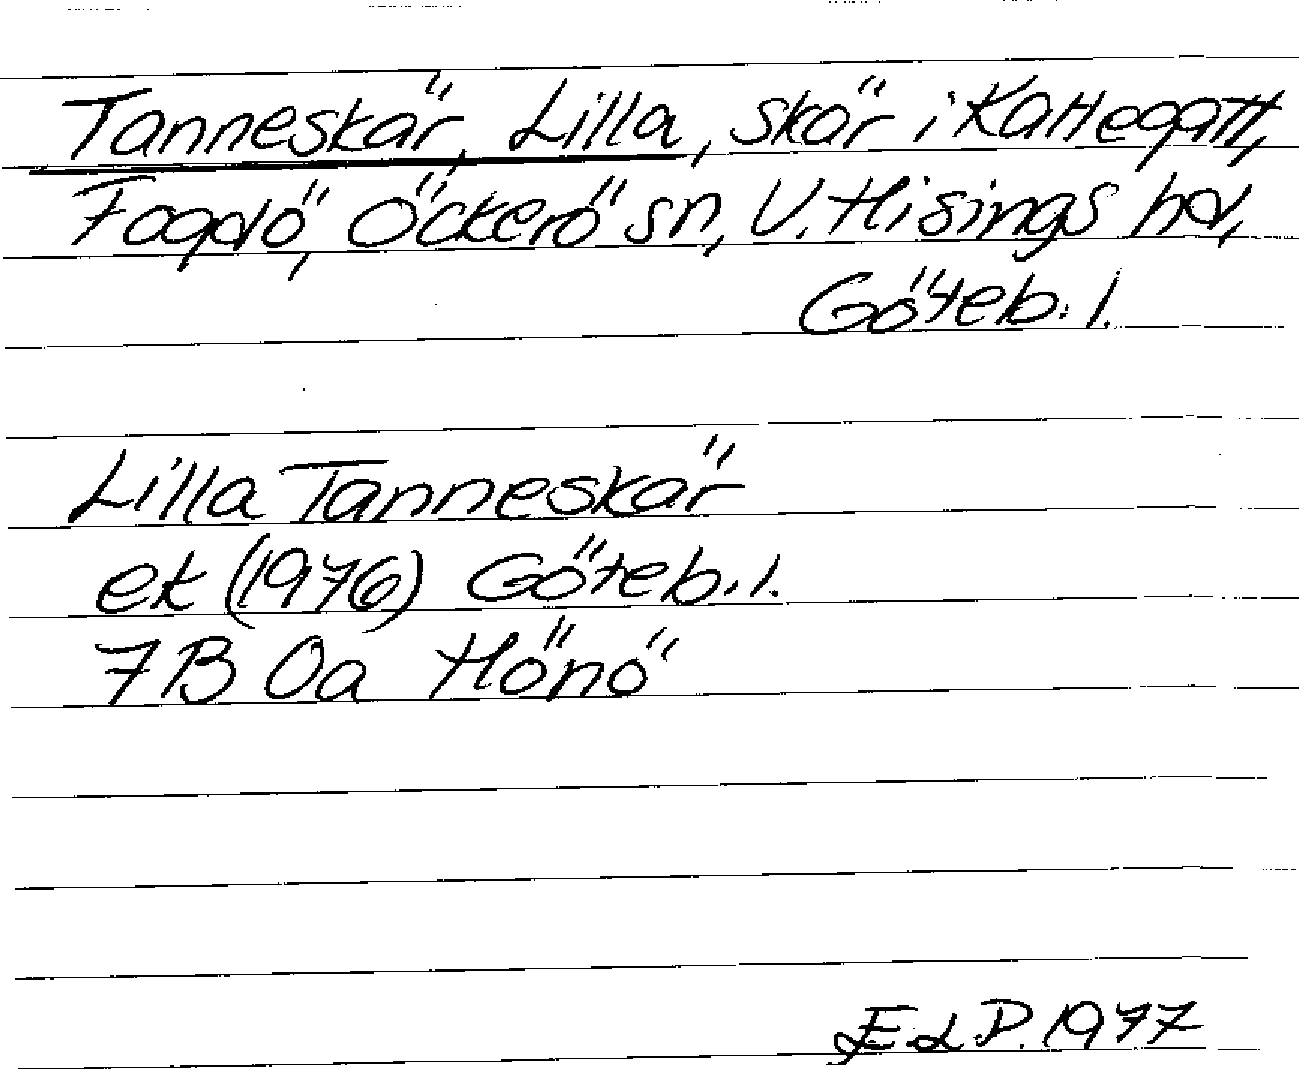 Tanneskär, Lilla, skär i Kattegatt,
Fogdö, Öckerö sn, V. Hisings hd,
Göteb. l.
Lilla Tanneskär
ek (1976) Göteb. l.
7B 0a Hönö
E L P. 1977